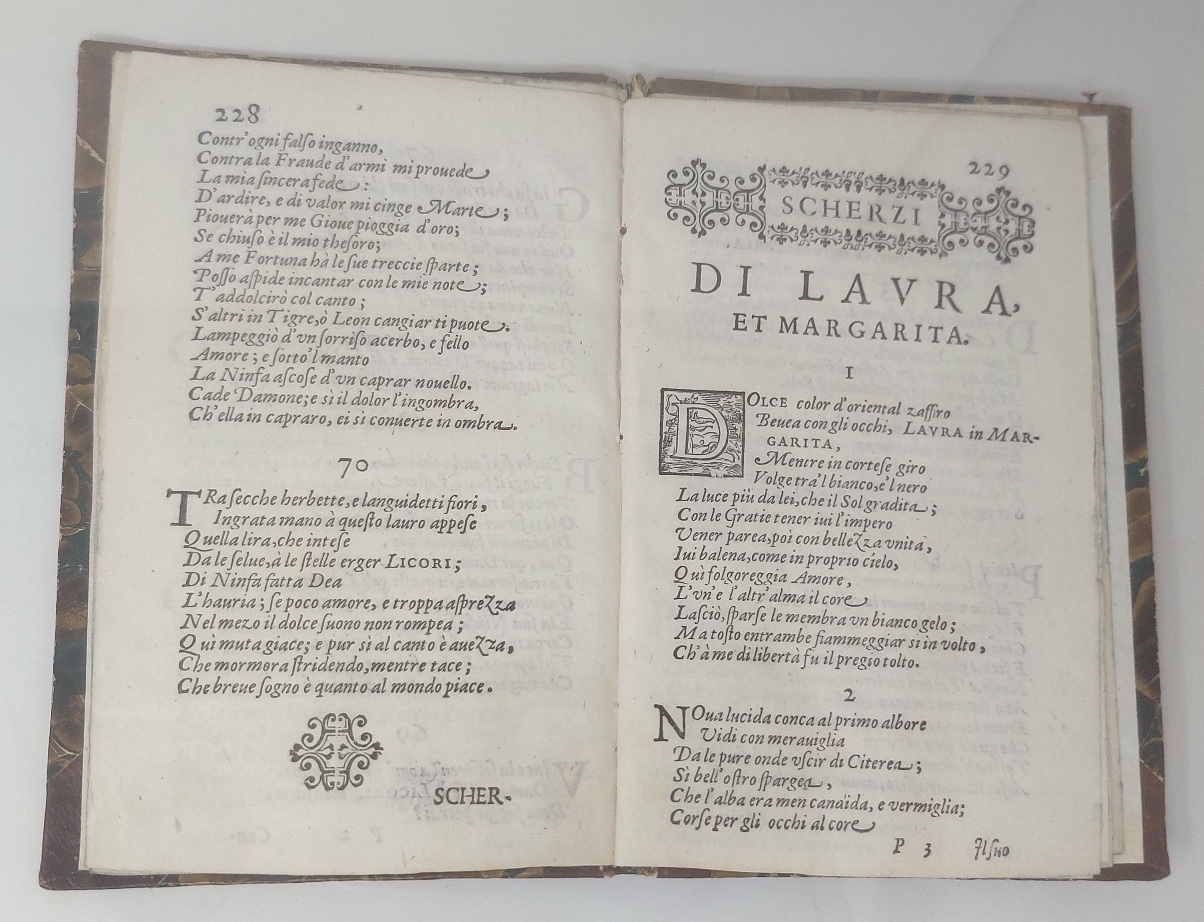 228
Contr'ogni falſo inganno,
Contra la Fraude d'armi mi prouede
La mia ſincera fede:
D'ardire, e di valor mi cinge Marte;
Piouerà per me Gioue pioggia d'oro;
Se chiuſo è il mio theſoro;
A me Fortuna hà le ſue treccie ſparte;
Poſſo aſpide incantar con le mie note;
T'addolcirò col canto;
S'altri in Tigre, ò Leon cangiar ti puote.
Lampeggiò d'vn ſorriſo acerbo, e fello
Amore; e ſotto'l manto
La Ninfa aſcoſe d'vn caprar nouello.
Cade Damone; e sì il dolor l'ingombra,
Ch'ella in capraro, ei si conuerte in ombra.
70
TRa ſecche herbette, e languidetti fiori,
Ingrata mano à queſto lauro appeſe
Quella lira, che inteſe
Da le ſelue, à le ſtelle erger LICORI;
Di Ninfa fatta Dea
L'hauria; ſe poco amore, e troppa aſprezza
Nel mezo il dolce ſuono non rompea;
Quì muta giace; e pur sì al canto è auezza,
Che mormora ſtridendo, mentre tace;
Che breue ſogno è quanto al mondo piace.
SCHER-
229
SCHERZI
DI LAVRA,
ET MARGARITA.
I
DOLCE color d'oriental zaffiro
Beuea con gli occhi, LAVRA in MAR-
GARITA,
Mentre in corteſe giro
Volge tra'l bianco, e'l nero
La luce più da lei, che il Sol gradita;
Con le Gratie tener iui l'impero
Vener parea, poi con bellezza vnita,
Iui balena, come in proprio cielo,
Quì folgoreggia Amore,
L'vn' e l'altr'alma il core
Laſciò, ſparſe le membra vn bianco gelo;
Ma toſto entrambe fiammeggiar si in volto,
Ch'à me di libertà fu il pregio tolto.
2
NOua lucida conca al primo albore
Vidi con merauiglia
Da le pure onde vſcir di Citerea;
Sì bell'oſtro ſpargea,
Che l'alba era men candida, e vermiglia;
Corſe per gli occhi al core
P 3 Il ſuo